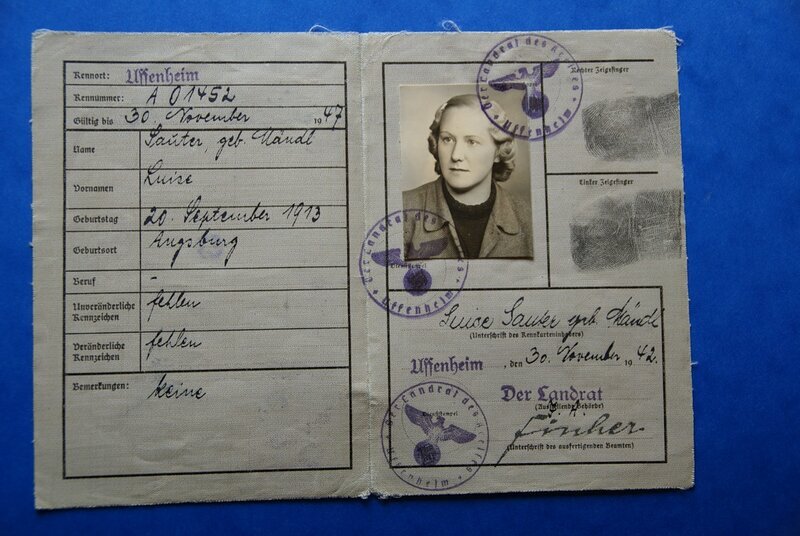 Kennort: Uffenheim
Kennnummer: A 01452
Gültig bis 30. November 1947
Name Sauter, geb. Mändl
Vornamen Luise
Geburtstag 20. September 1913
Geburtsort Augsburg
Beruf -
Unveränderliche Kennzeichen fehlen
Veränderliche Kennzeichen fehlen
Bemerkungen: keine
Der Landrat des Kreises
Uffenheim
Rechter Zeigefinger
Linker Zeigefinger
Der Landrat des Kreises
Uffenheim
Dienststempel
Luise Sauter geb. Mändl
(Unterschrift des Kennkarteninhabers)
Uffenheim, den 30. November 1942.
Der Landrat
(Ausstellende Behörde)
Der Landrat des Kreises
Uffenheim
Dienststempel
(Unterschrift des ausfertigenden Beamten)